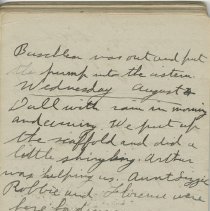 was out and put
the pump into the cistern
Wednesday August
Dull with rain in morning
and evening. We put up
the scaffold and did a
little shingling. Arthur
was helping us. Aunt Lizzie
Robbie and Florence were
here to